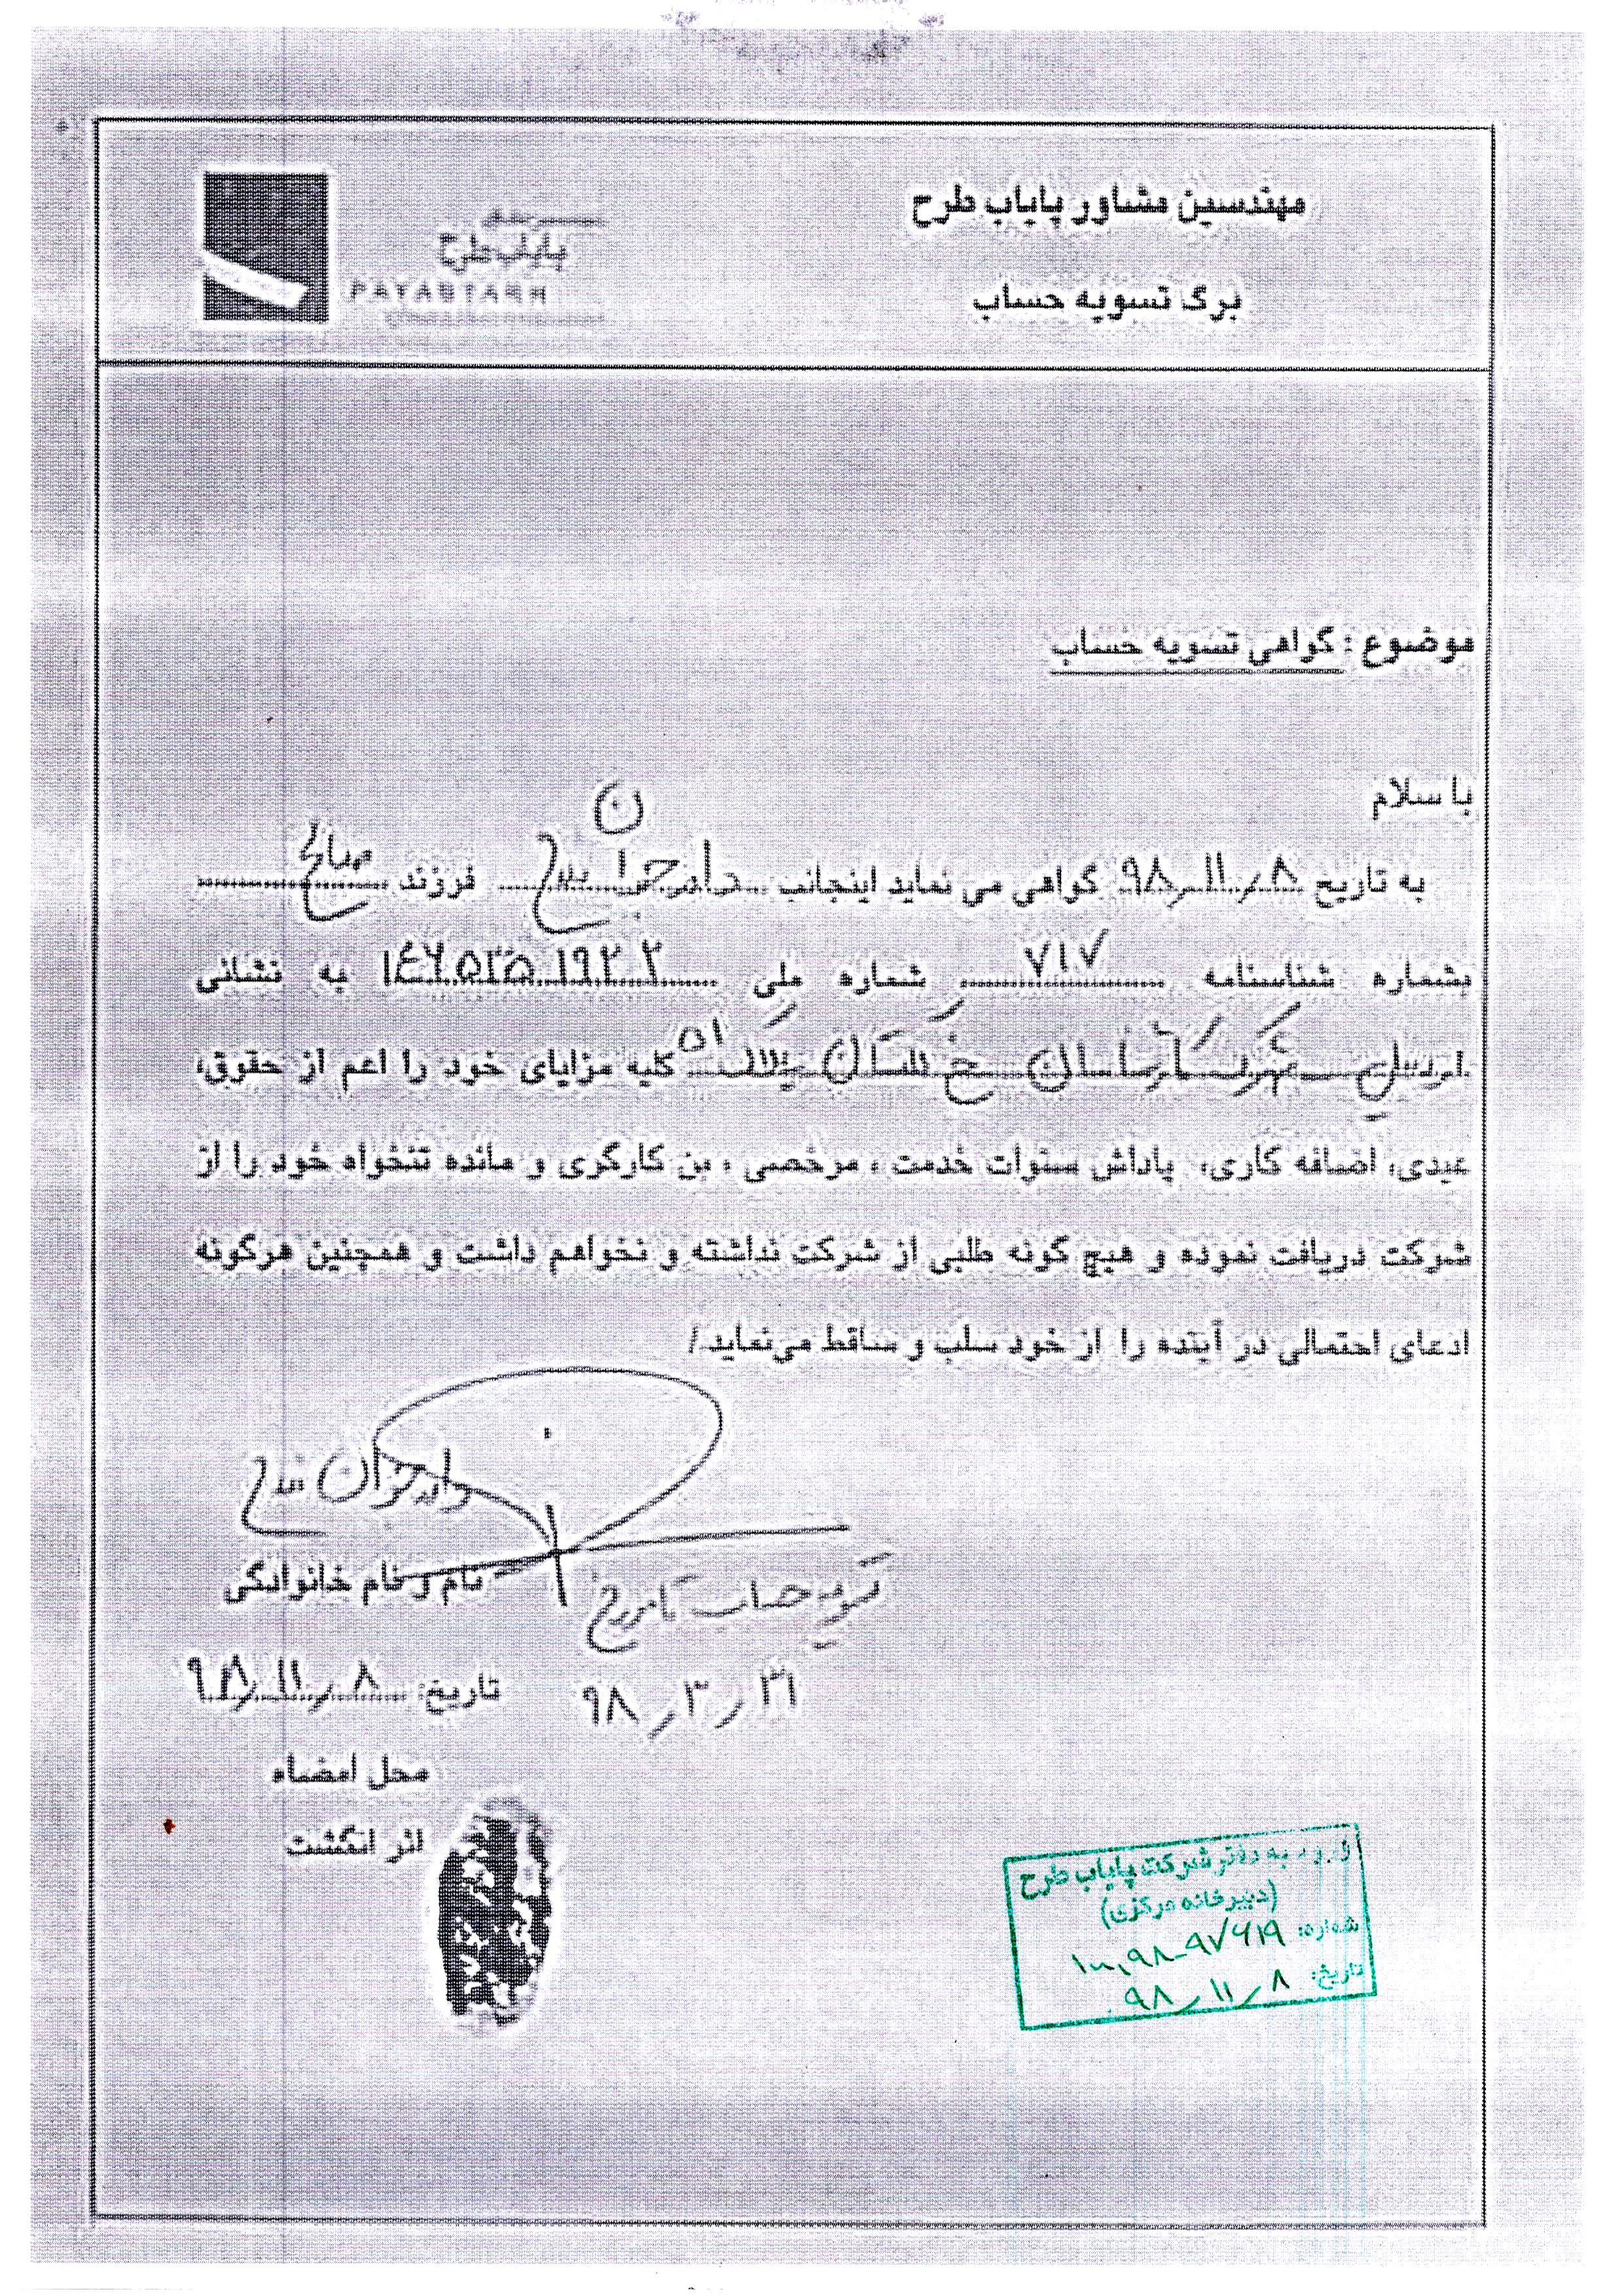 مهندسین مشاور پایاب طرح
برگ تسویه حساب
پایاب طرح
PAYABTARH
موضوع : گواهی تسویه حساب
با سلام
به تاریخ ۹۸/۱۱/۸ گواهی می نماید اینجانب فرزند صالح
بشماره شناسنامه ۷۱۷ و شماره ملی به نشانی
اردبیل کلیه مزایای خود را اعم از حقوق،
عیدی، اضافه کاری، پاداش سنوات خدمت ، مرخصی ، بن کارگری و مانده تنخواه خود را از
شرکت دریافت نموده و هیچ گونه طلبی از شرکت نداشته و نخواهم داشت و همچنین هرگونه
ادعای احتمالی در آینده را از خود سلب و ساقط می‌نماید./
نام و نام خانوادگی
تسویه حساب تا تاریخ
۹۸/۳/۳۱
تاریخ: ۹۸/۱۱/۸
محل امضاء
اثر انگشت
ورود به دفتر شرکت پایاب طرح
(دبیرخانه مرکزی)
شماره:
تاریخ: ۹۸/۱۱/۸